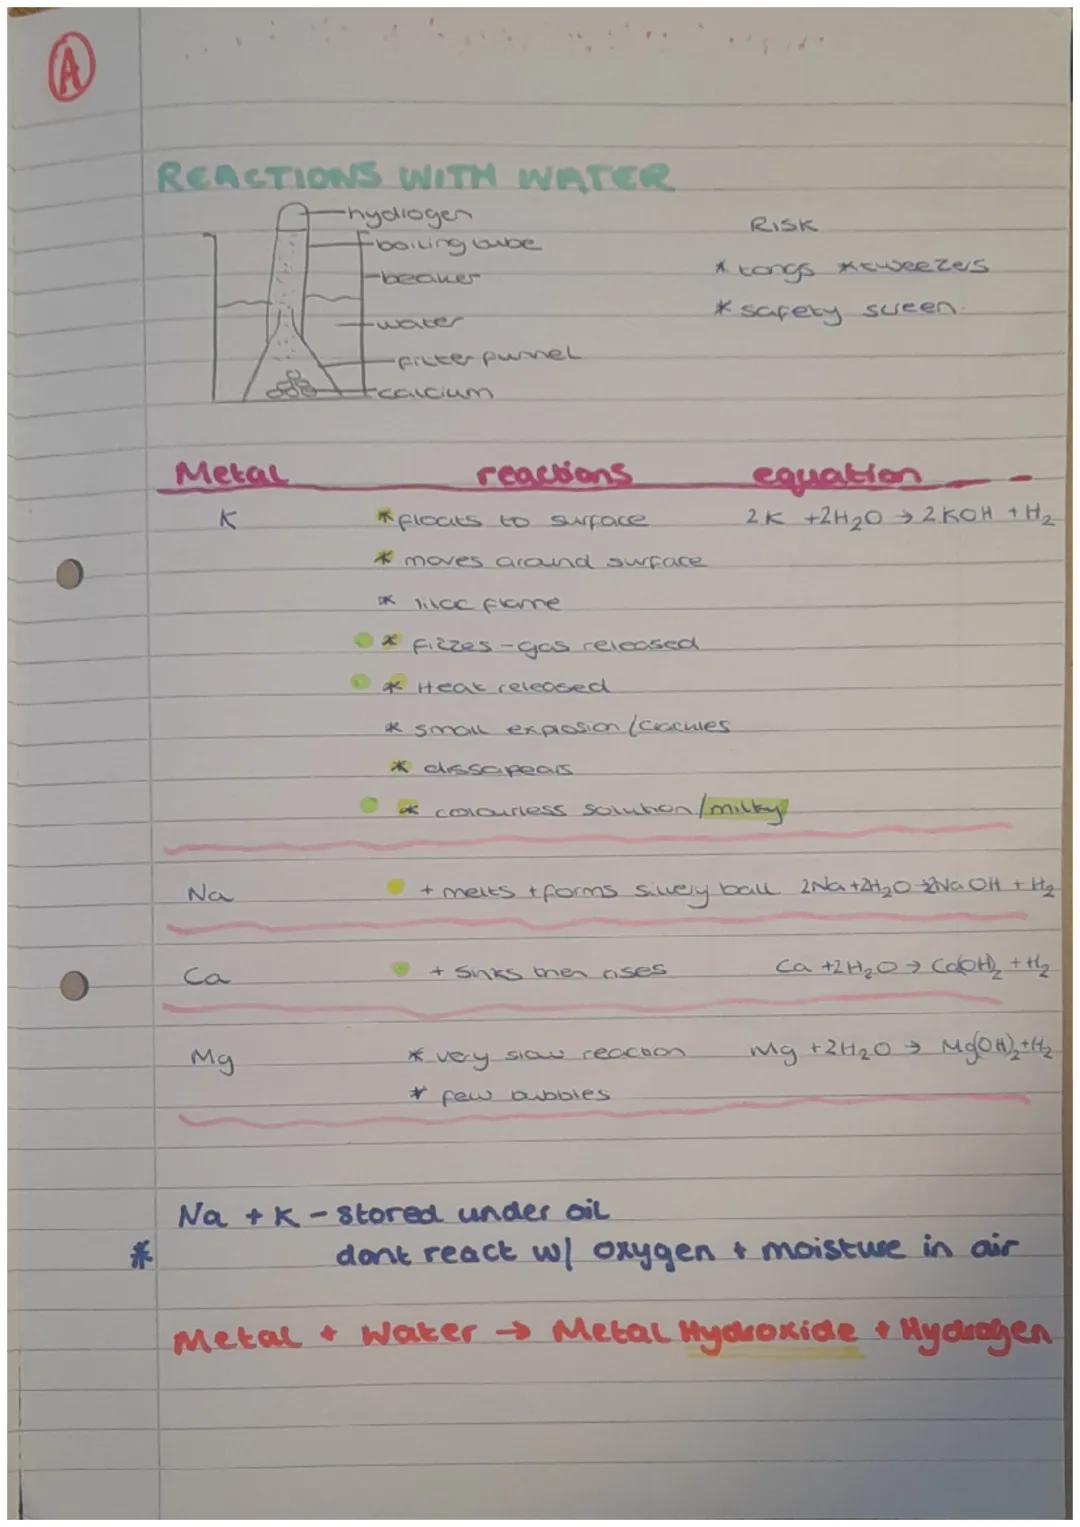 A
REACTIONS WITH WATER
hydrogen
boiling tube
beaker
water
filter funnel
calcium
RISK
* tongs * tweezers
* safety screen
Metal reactions equation
K * floats to surface 2K +2H₂O → 2KOH + H₂
* moves around surface
* lilac flame
* fizzes - gas released
* Heat released
* small explosion / crackles
* dissapears
* colourless solution / milky
Na + melts + forms silvery ball 2Na+2H₂O → 2NaOH + H₂
Ca + sinks then rises Ca +2H₂O → Ca(OH)₂ + H₂
Mg * very slow reaction Mg +2H₂O → Mg(OH)₂+H₂
* few bubbles
Na + K - stored under oil
* dont react w/ oxygen + moisture in air
Metal + Water → Metal Hydroxide + Hydrogen